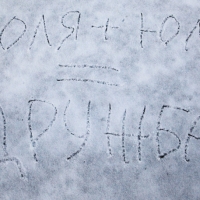 ОЛЯ+ЮЛ
=
ДРУЖБА